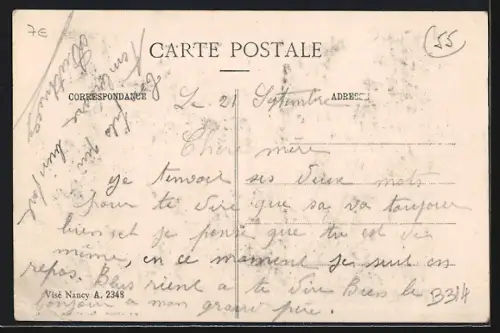 7E
55
CARTE POSTALE
CORRESPONDANCE
ADRESSE
Le 21 Septembre
Chère mère
Je tenvoit ses deux mots
pour te dire que sa va toujour
bien et je pense que tu est de
même, en ce moment je suit en
repos. Plus rient a te dire Bien le
bonjour a mon grand père.
Visé Nancy A. 2348
B314
Ton
fils qui